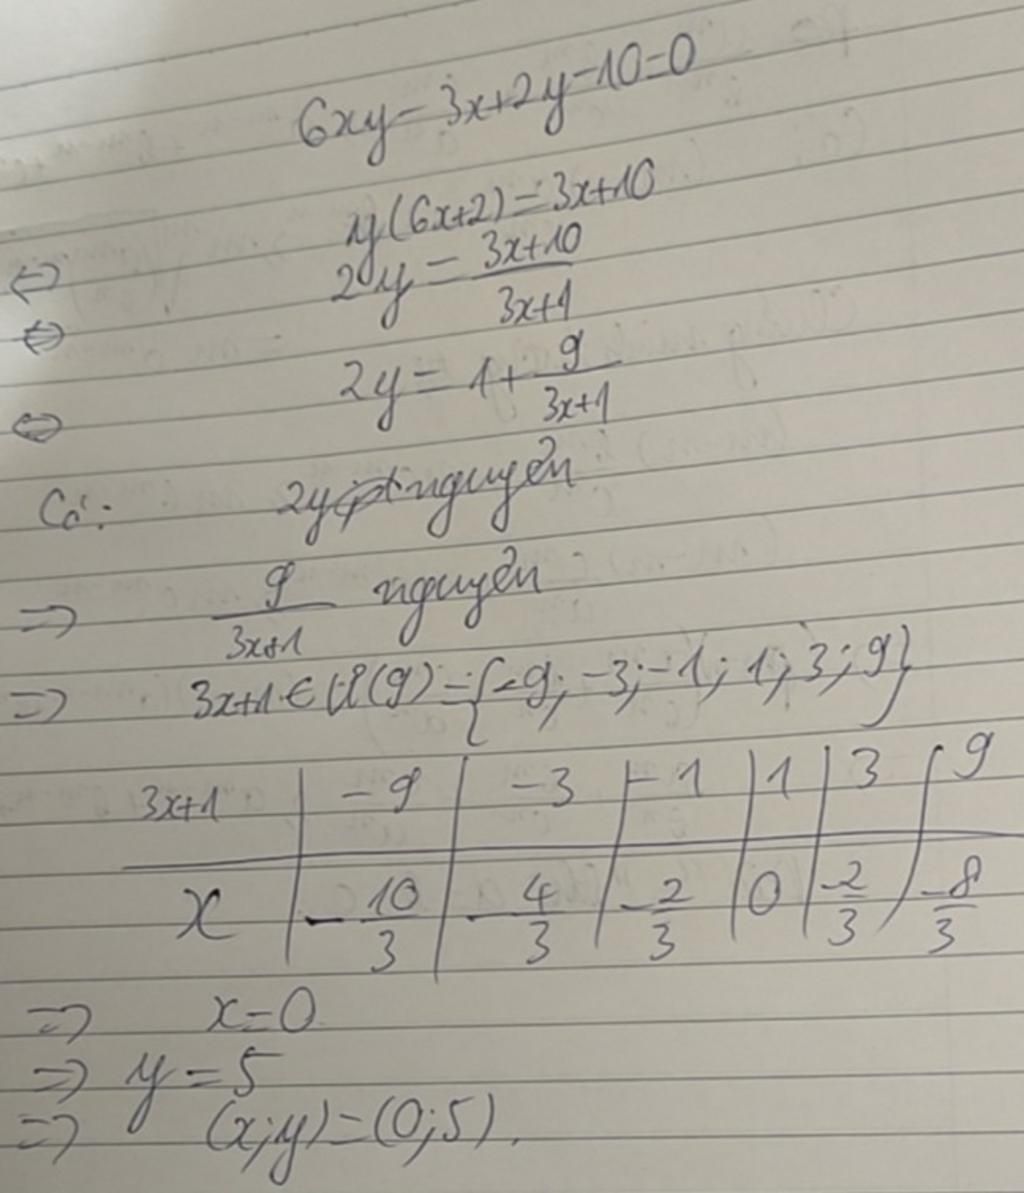 6xy-3x+2y-10=0
⇔ y(6x+2)=3x+10
⇔ 2y = \frac{3x+10}{3x+1}
⇔ 2y = 1+\frac{9}{3x+1}
Có: 2y nguyên
⇒ \frac{9}{3x+1} nguyên
⇒ 3x+1 ∈ Ư(9) = {-9; -3; -1; 1; 3; 9}
3x+1 | -9 | -3 | -1 | 1 | 3 | 9
x | -\frac{10}{3} | -\frac{4}{3} | -\frac{2}{3} | 0 | \frac{-2}{3} | \frac{-8}{3}
⇒ x=0
⇒ y=5
⇒ (x;y)=(0;5).